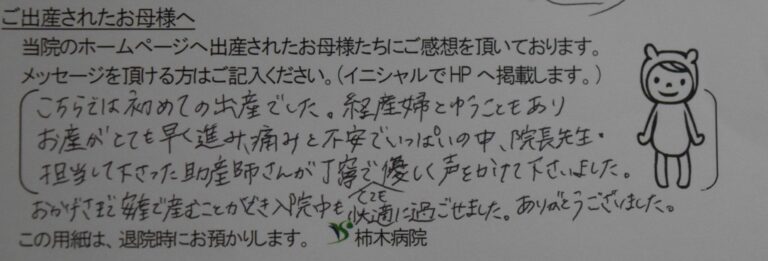 ご出産されたお母様へ
当院のホームページへ出産されたお母様たちにご感想を頂いております。
メッセージを頂ける方はご記入ください。(イニシャルでHPへ掲載します。)
こちらでは初めての出産でした。経産婦とゆうこともあり
お産がとても早く進み、痛みと不安でいっぱいの中、院長先生・
担当して下さった助産師さんが丁寧で優しく声をかけて下さいました。
おかげさまで安産で産むことができ入院中もとても快適に過ごせました。ありがとうございました。
この用紙は、退院時にお預かりします。 柿木病院